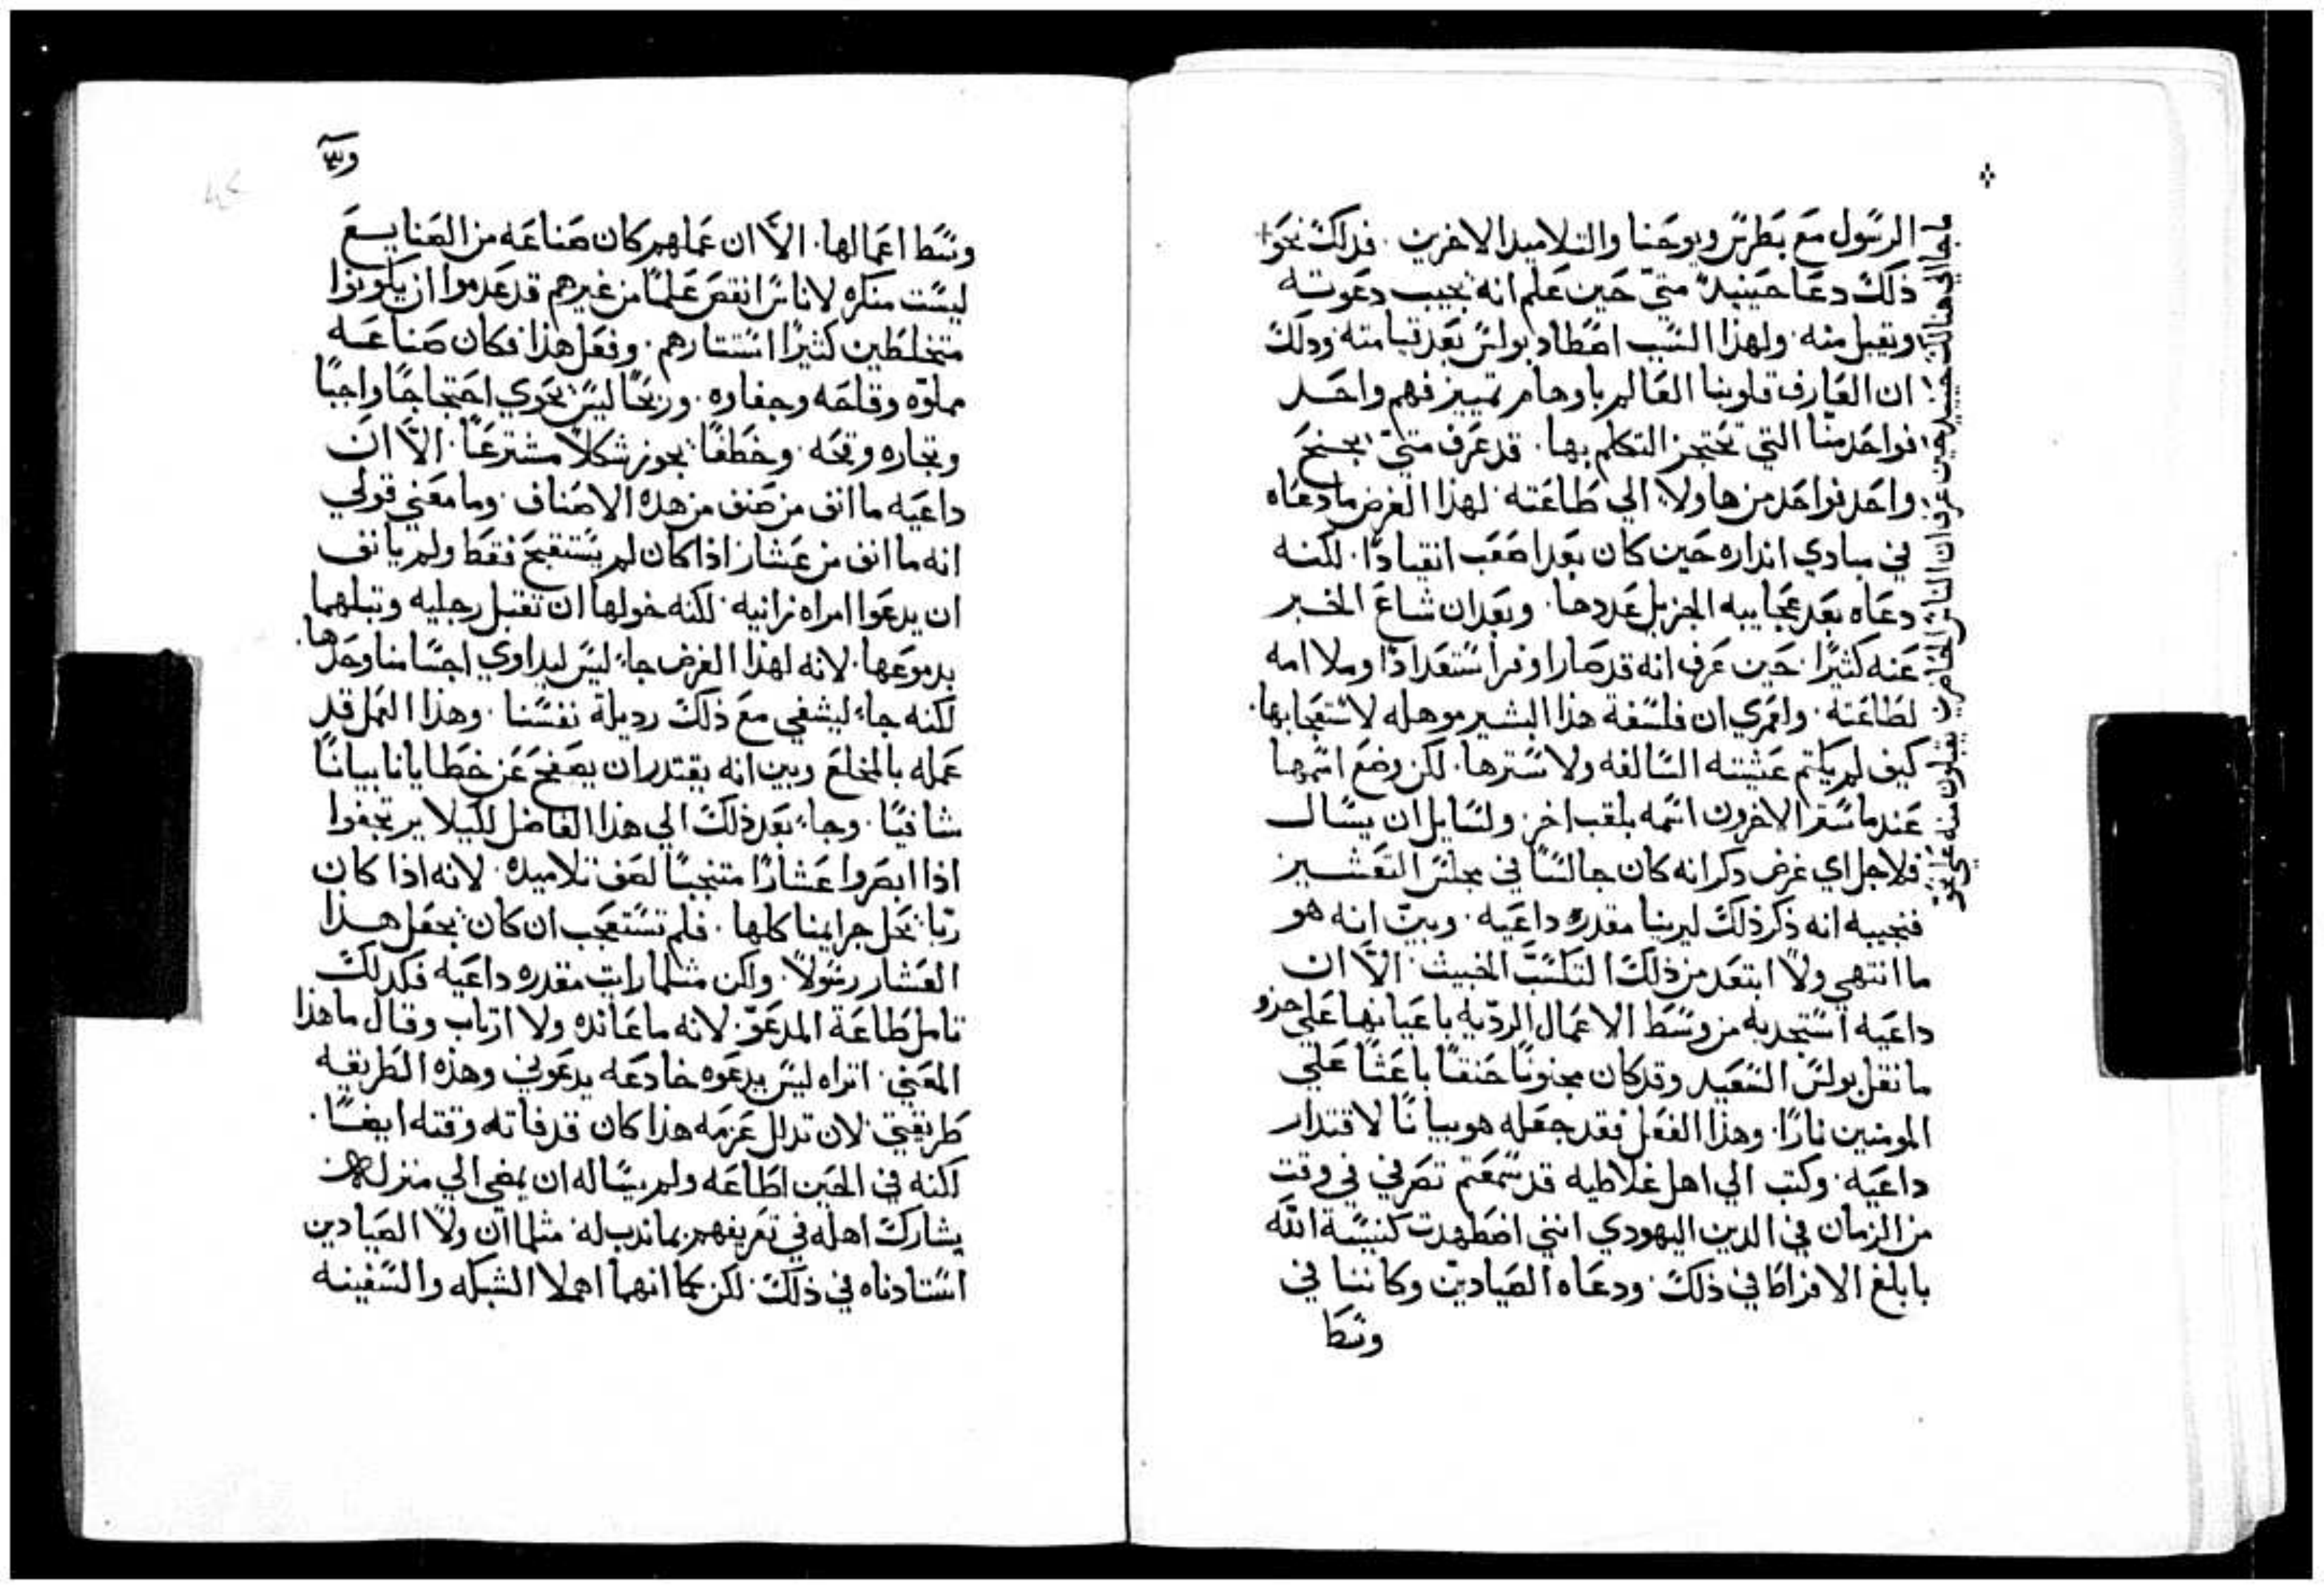 الرسول مع بطرس ويوحنا والتلاميد الاخرين . فدلك نحو +
ذلك دعا حينيد متي حين علم انه يجيب دعوته
ويقبل منه . ولهذا السبب اصطاد بولس بعد قيامته ودلك
ان العارف قلوبنا العالم باوهام تمييز فهم واحد
فواحد منا التي تحتجز التكلم بها . قد عرف متي يجنح
واحد فواحد من هاولاء الي طاعته . لهذا الغرض ما دعاه
في مبادي انداره حين كان بعد اصعب انقيادا . لكنه
دعاه بعد عجايبه الجزيل عددها . وبعد ان شاع الخبر
عنه كثيرا . حين عرف انه قد صار اوفر استعدادا وملاامه
لطاعته . ولعمري ان فلسفة هذا البشير موهله لاستعجابها .
كيف لم يكتم عيشته السالفه ولا سترها . لكن وضع اسمها
عندما ستر الاخرون اسمه بلقب اخر . ولسايل ان يسال
فلاجل اي غرض دكر انه كان جالسا في مجلس التعشير
فنجيبه انه ذكر ذلك ليرينا مقدره داعيه . وبين انه هو
ما انتهي ولا ابتعد من ذلك التكسب الخبيث . الا ان
داعيه استجدبه من وسط الاعمال الرديه باعيانها علي حذو
ما نقل بولس السعيد وقد كان مجنونا حنقا باعثا علي
المومنين نارا . وهذا الفعل فقد جعله هو بيانا لاقتدار
داعيه . وكتب الي اهل غلاطيه قد سمعتم تصرفي في وقت
من الزمان في الدين اليهودي انني اضطهدت كنيسة الله
بابلغ الافراط في ذلك . ودعاه الصيادين وكاننا في
وسط
ما جا الي هنالك حينيد حين عرف ان الناس الحاضرين يقبلون منه علي نحو
وسط اعمالها . الا ان عملهم كان صناعه من الصنايع
ليست منكره لاناس انقص علما من غيرهم قد عدموا ان يكونوا
متخلطين كثيرا استتارهم . وفعل هذا فكان صناعه
مملوه وقاحه وجفاوه . وربحا ليس يحوي احتجاجا واجبا
وتجاره وقحه . وخطفا يجوز شكلا مشترعا . الا ان
داعيه ما انف من صنف من هده الاصناف . وما معني قولي
انه ما انف من عشار اذا كان لم يستقبح فقط ولم يانف
ان يدعوا امراه زانيه . لكنه خولها ان تقبل رجليه وتبلهما
بدموعها . لانه لهذا الغرض جاء ليس ليداوي اجسامنا وحدها .
لكنه جاء ليشفي مع ذلك رديلة نفسنا . وهذا العمل قد
عمله بالمخلع وبين انه يقتدر ان يصفح عن خطايانا بيانا
شافيا . وجاء بعد ذلك الي هذا الفاضل لكيلا يرتجفوا
اذا ابصروا عشارا منتجبا لصف تلاميده . لانه اذا كان
ربا يحل جرايمنا كلها . فلم تستعجب ان كان يجعل هذا
العشار رسولا . ولكن مثلما رايت مقدره داعيه فكدلك
تامل طاعة المدعو . لانه ما عانده ولا ارتاب وقال ما هذا
المعني . اتراه ليس يدعوه خادعه يدعوني وهذه الطريقه
طريقتي . لان تدلل عزمه هذا كان قد فاته وقته ايضا .
لكنه في الحين اطاعه ولم يساله ان يمضي الي منزله
يشارك اهله في تعريفهم بما ندب له . مثلما ان ولا الصيادين
استادناه في ذلك . لكن كما انهما اهملا الشبكه والسفينه